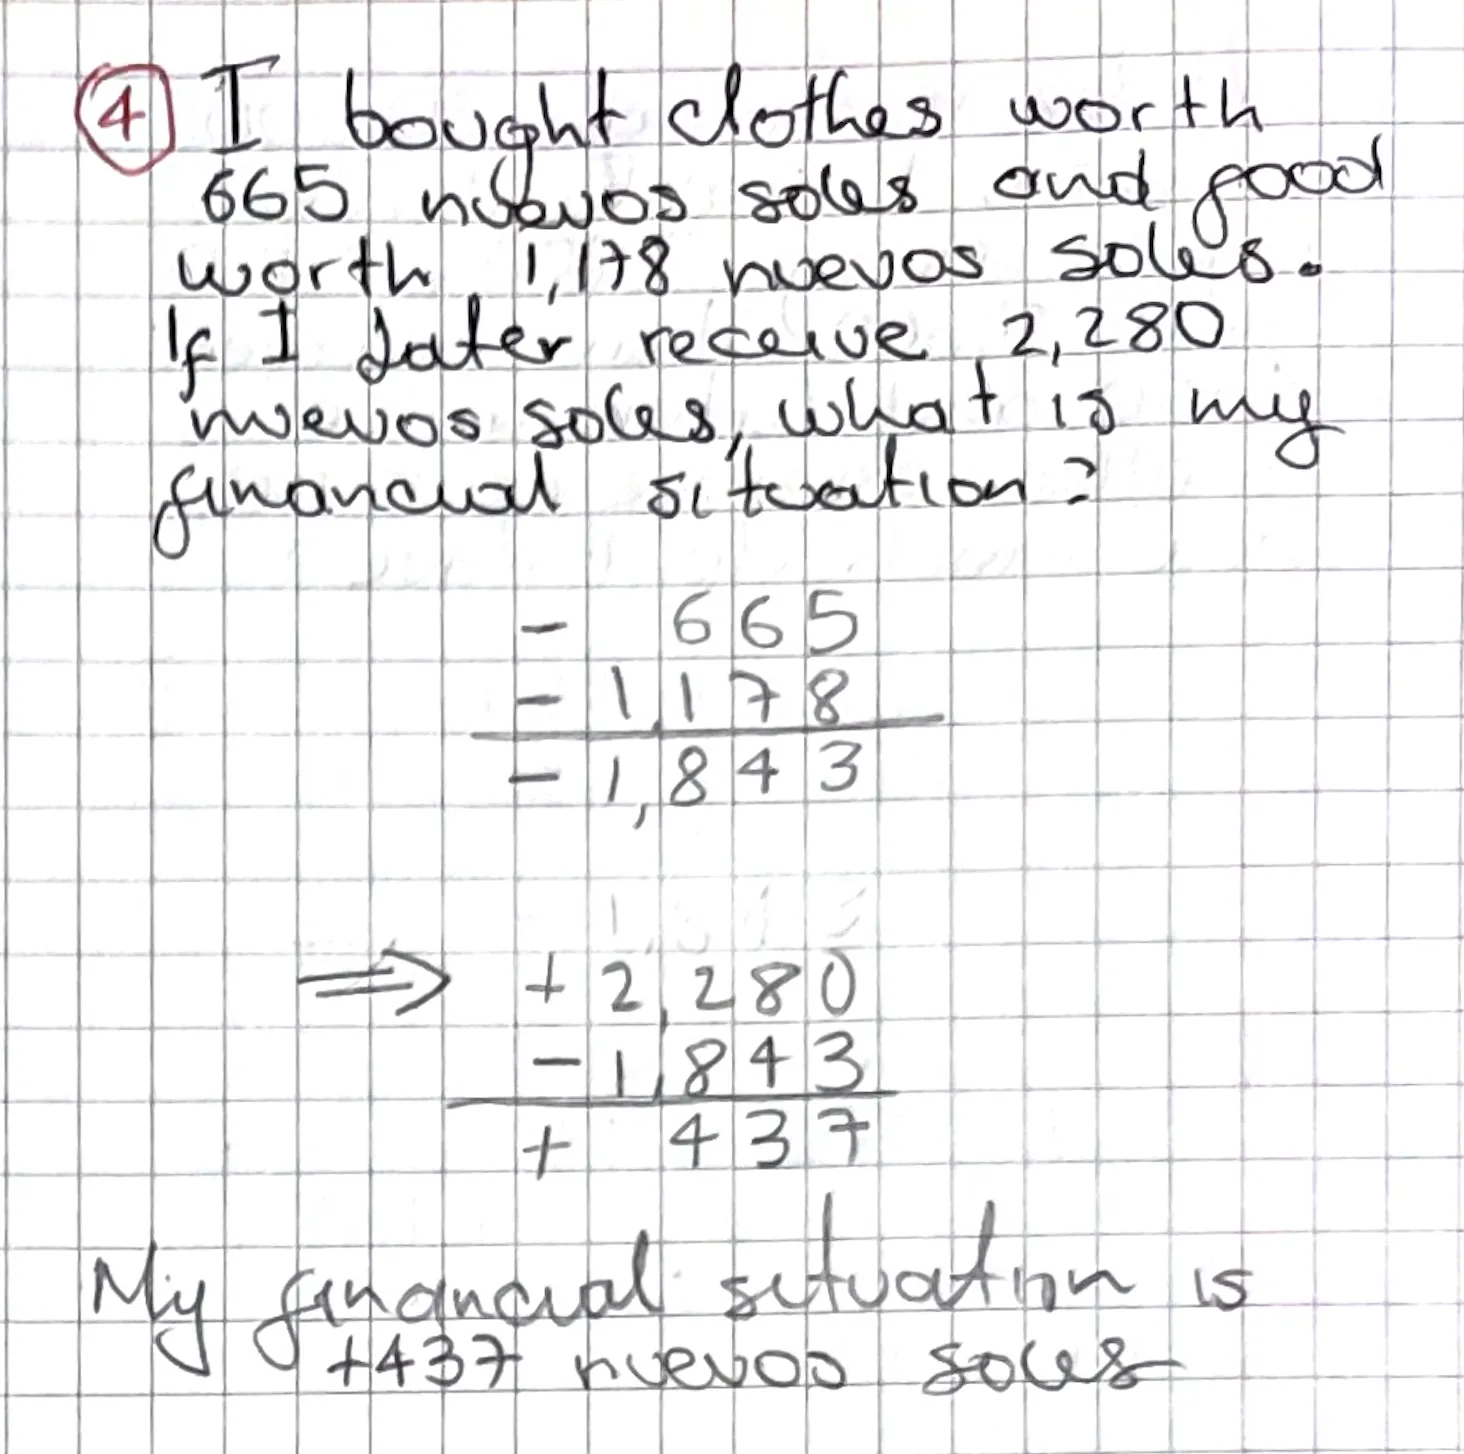 4 I bought clothes worth
665 nuevos soles and good
worth 1,178 nuevos soles.
If I later receive 2,280
nuevos soles, what is my
financial situation?
- 665
- 1,178
- 1,843
⇒ + 2,280
- 1,843
+ 437
My financial situation is
+437 nuevos soles